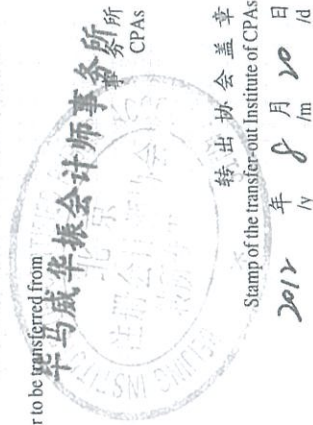 r to be transferred from
毕马威华振会计师事务所
事务所
CPAs
转出协会盖章
Stamp of the transfer-out Institute of CPAs
2012 年 8 月 20 日
/y /m /d
北京
BEIJING INSTIT